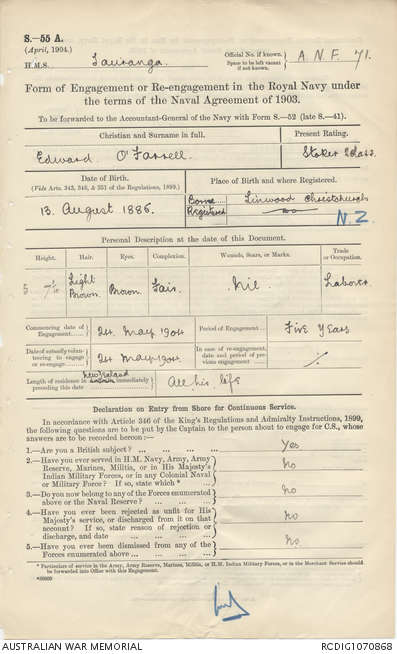 S.—55 A.
(April, 1904.)
H.M.S. Tauranga.
Official No. if known.
Space to be left vacant if not known.
A.N.F. 71.
Form of Engagement or Re-engagement in the Royal Navy under
the terms of the Naval Agreement of 1903.
To be forwarded to the Accountant-General of the Navy with Form S.—52 (late S.—41).
Christian and Surname in full.
Present Rating.
Edward O'Farrell
Stoker 2 Class.
Date of Birth.
(Vide Arts. 345, 348, & 351 of the Regulations, 1899.)
Place of Birth and where Registered.
13 August 1886.
Born
Registered
Linwood Christchurch
do
N.Z
Personal Description at the date of this Document.
Height.
Hair.
Eyes.
Complexion.
Wounds, Scars, or Marks.
Trade or Occupation.
5
Light Brown.
Brown.
Fair.
Nil.
Labourer
Commencing date of Engagement
24 May 1904
Period of Engagement
Five Years
Date of actually volunteering to engage or re-engage
24 May 1904.
In case of re-engagement, date and period of previous engagement
Length of residence in New Zealand immediately preceding this date
All his life
Declaration on Entry from Shore for Continuous Service.
In accordance with Article 346 of the King's Regulations and Admiralty Instructions, 1899,
the following questions are to be put by the Captain to the person about to engage for C.S., whose
answers are to be recorded hereon:—
1.—Are you a British subject? ... ... ... ... Yes
2.—Have you ever served in H.M. Navy, Army, Army
Reserve, Marines, Militia, or in His Majesty's
Indian Military Forces, or in any Colonial Naval
or Military Force? If so, state which * ... ...
No
3.—Do you now belong to any of the Forces enumerated
above or the Naval Reserve? ... ... ...
No
4.—Have you ever been rejected as unfit for His
Majesty's service, or discharged from it on that
account? If so, state reason of rejection or
discharge, and date ... ... ... ...
No
5.—Have you ever been dismissed from any of the
Forces enumerated above ... ... ... ...
No.
* Particulars of service in the Army, Army Reserve, Marines, Militia, or H.M. Indian Military Forces, or in the Merchant Service should
be forwarded into Office with this Engagement.
AUSTRALIAN WAR MEMORIAL
RCDIG1070868